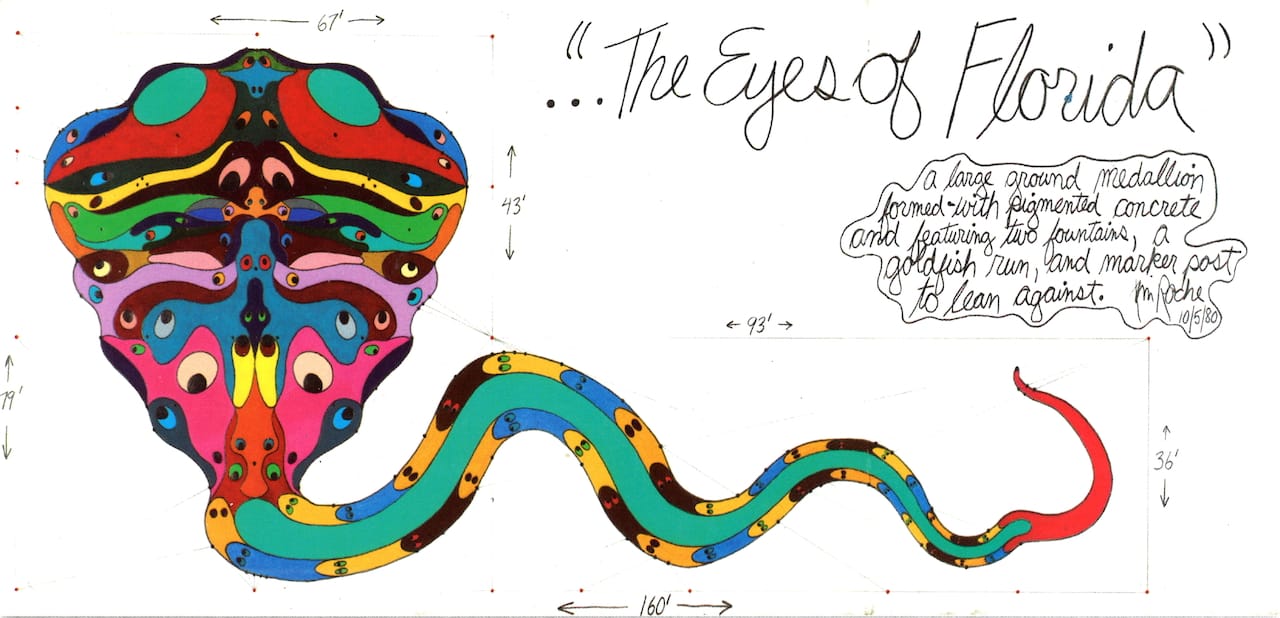 67'
..."The Eyes of Florida"
a large ground medallion
formed with pigmented concrete
and featuring two fountains, a
goldfish run, and marker post
to lean against. Jim Roche
10/5/80
43'
93'
79'
36'
160'